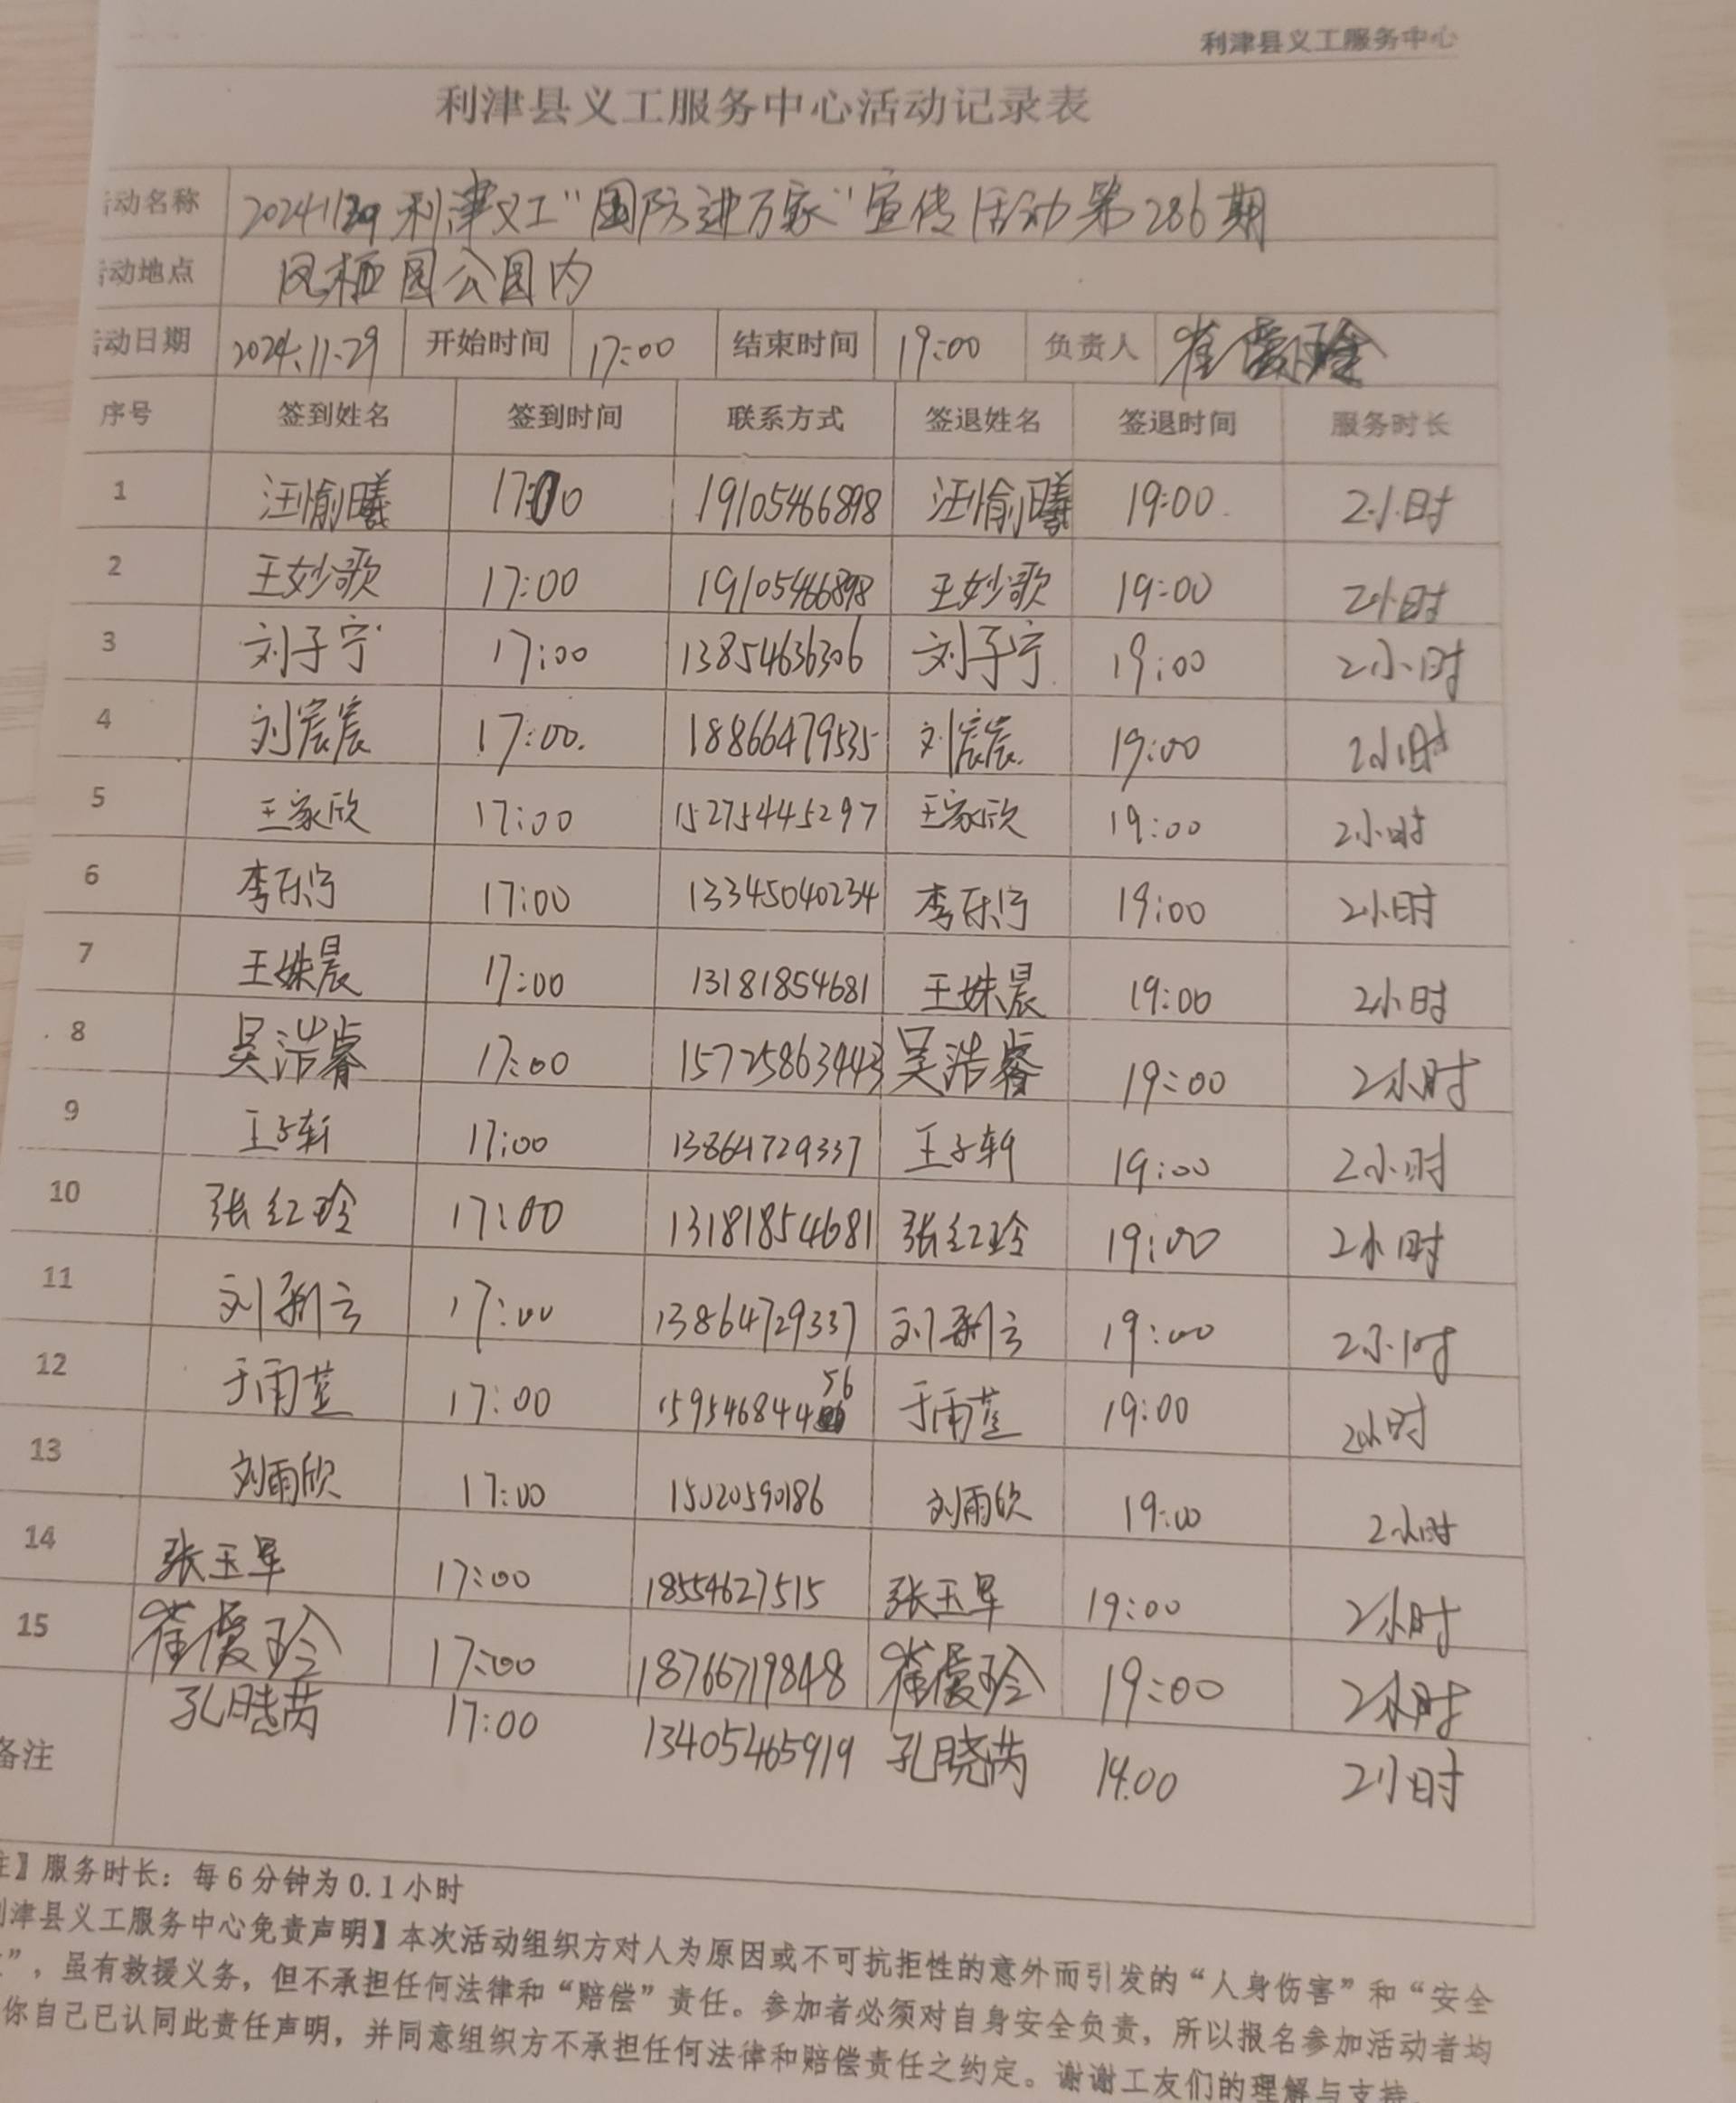 利津县义工服务中心
利津县义工服务中心活动记录表
活动名称 2024.11.29利津义工“国防进万家”宣传活动第286期
活动地点 凤栖园公园内
活动日期 2024.11.29 开始时间 17:00 结束时间 19:00 负责人 崔霞玲
序号 签到姓名 签到时间 联系方式 签退姓名 签退时间 服务时长
1 汪愉曦 17:00 19105466898 汪愉曦 19:00 2小时
2 王妙歌 17:00 19105466898 王妙歌 19:00 2小时
3 刘子宁 17:00 13854636306 刘子宁 19:00 2小时
4 刘宸宸 17:00 18866479535 刘宸宸 19:00 2小时
5 王家欣 17:00 15275445297 王家欣 19:00 2小时
6 李乐宁 17:00 13345040234 李乐宁 19:00 2小时
7 王姝晨 17:00 13181854681 王姝晨 19:00 2小时
8 吴浩睿 17:00 15725863443 吴浩睿 19:00 2小时
9 王子轩 17:00 13864729337 王子轩 19:00 2小时
10 张红玲 17:00 13181854681 张红玲 19:00 2小时
11 刘 云 17:00 13864729337 刘 云 19:00 2小时
12 于雨萱 17:00 15954684456 于雨萱 19:00 2小时
13 刘雨欣 17:00 15020590186 刘雨欣 19:00 2小时
14 张玉军 17:00 18554627515 张玉军 19:00 2小时
15 崔霞玲 17:00 18766719848 崔霞玲 19:00 2小时
备注 孔晓芮 17:00 13405465919 孔晓芮 19:00 2小时
注】服务时长：每6分钟为0.1小时
利津县义工服务中心免责声明】本次活动组织方对人为原因或不可抗拒性的意外而引发的“人身伤害”和“安全
”，虽有救援义务，但不承担任何法律和“赔偿”责任。参加者必须对自身安全负责，所以报名参加活动者均
你自己已认同此责任声明，并同意组织方不承担任何法律和赔偿责任之约定。谢谢工友们的理解与支持。